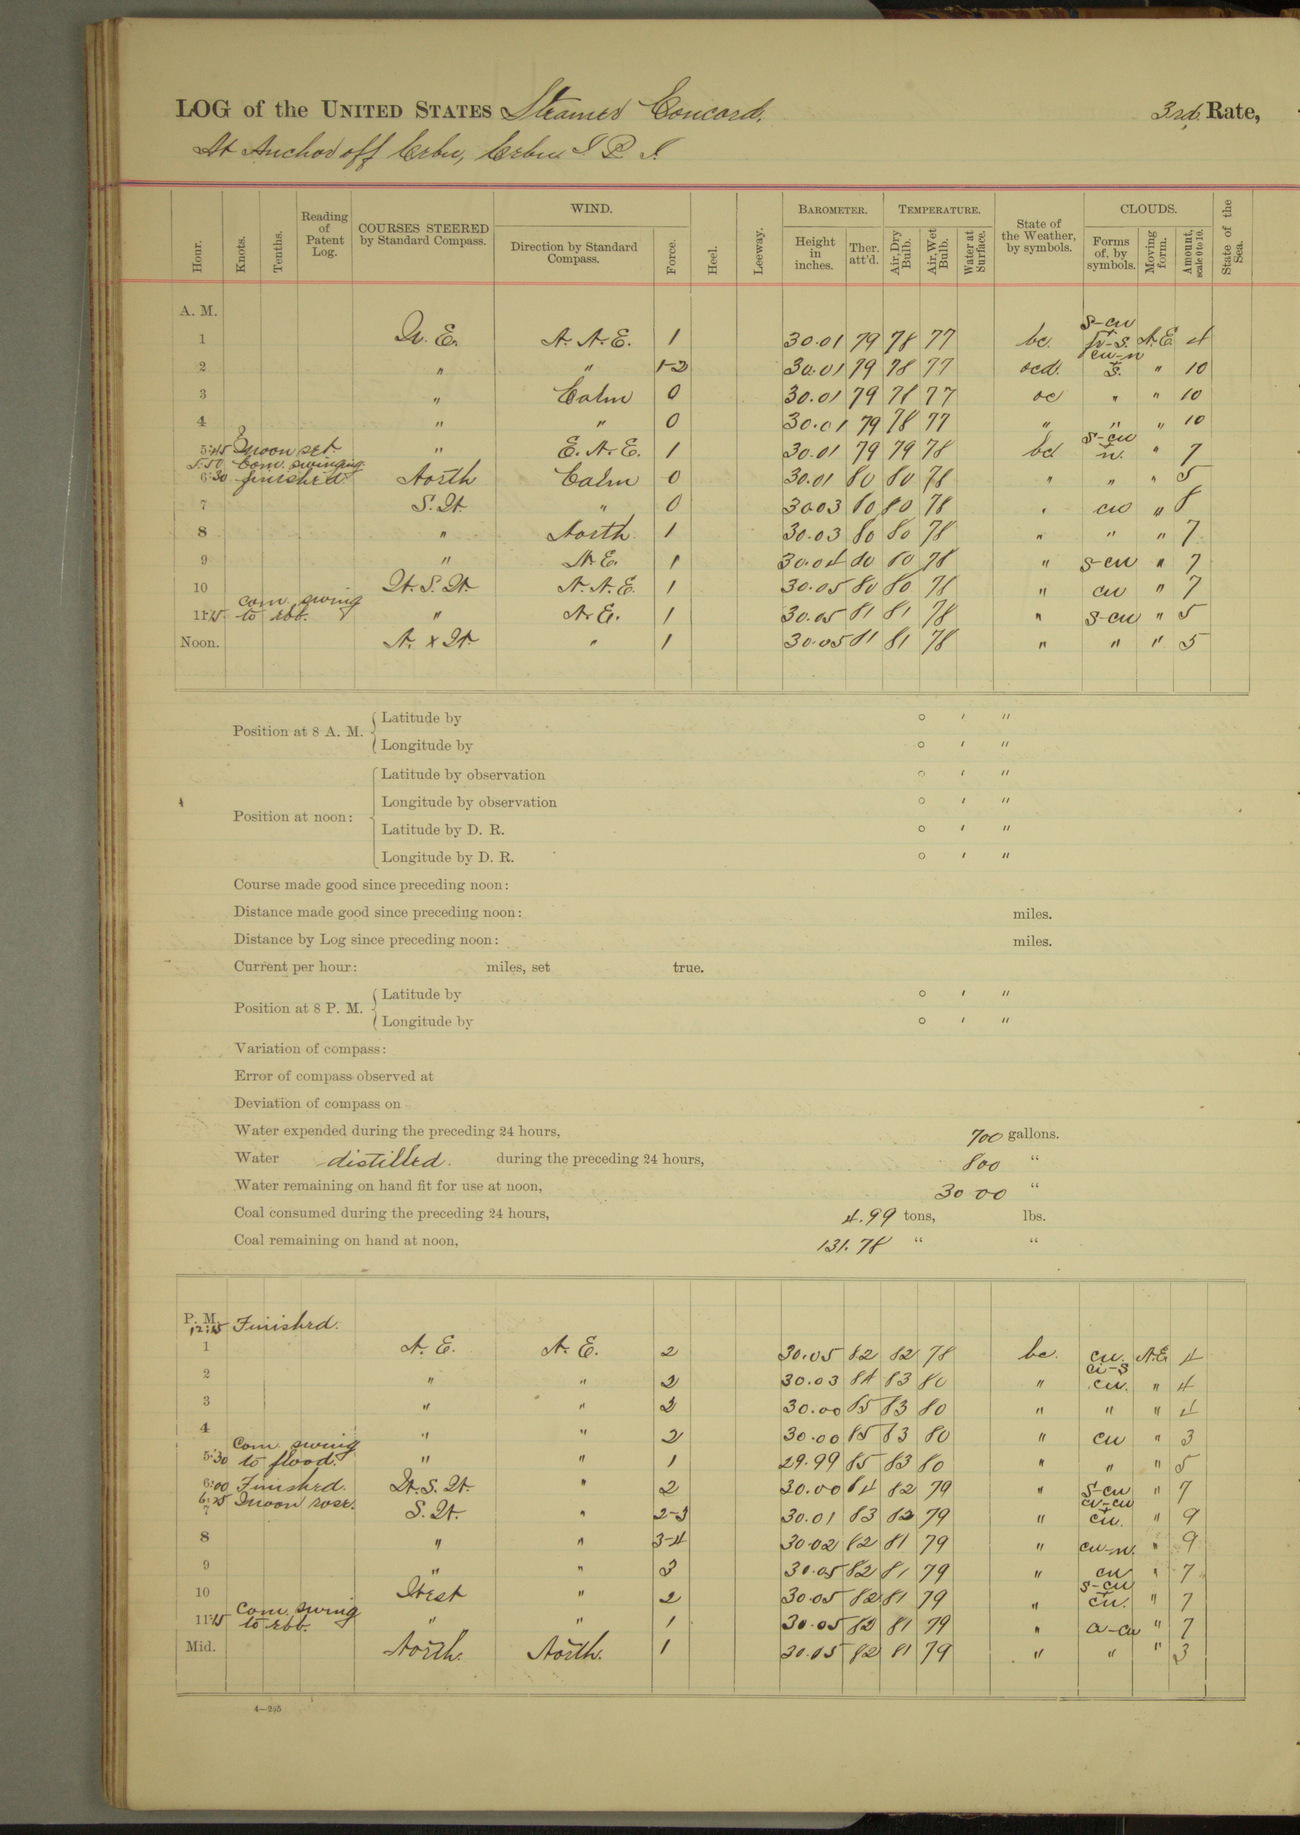 LOG of the UNITED STATES Steamer Concord. 3rd. Rate,
At Anchor off Cebu, Cebu I. P. I.
Hour. Knots. Tenths. Reading of Patent Log. COURSES STEERED by Standard Compass. WIND. Direction by Standard Compass. Force. Heel. Leeway. BAROMETER. Height in inches. Ther. att'd. TEMPERATURE. Air, Dry Bulb. Air, Wet Bulb. Water at Surface. State of the Weather, by symbols. CLOUDS. Forms of, by symbols. Moving form. Amount, scale 0 to 10. State of the Sea.
A. M.
1 N. E. N. N. E. 1 30.01 79 78 77 bc. s-cu + N.E. 4
2 " " 1-2 30.01 79 78 77 ocd. cu-n + s. " 10
3 " Calm 0 30.01 79 78 77 oc " " 10
4 " " 0 30.01 79 78 77 " " " 10
5:45 Moon set. " E. N. E. 1 30.01 79 79 78 bc s-cu + n. " 7
5:50 Com. swinging
6:30 finished North Calm 0 30.01 80 80 78 " " " 5
7 S. W. " 0 30.03 80 80 78 " cu " 8
8 " North 1 30.03 80 80 78 " " " 7
9 " N.E. 1 30.04 80 80 78 " s-cu " 7
10 W. S. W. N. N. E. 1 30.05 80 80 78 " cu " 7
com. swing
11:15 to ebb. " N.E. 1 30.05 81 81 78 " s-cu " 5
Noon. N. x W. " 1 30.05 81 81 78 " " " 5
Position at 8 A. M. Latitude by ° ′ ″
Longitude by ° ′ ″
Position at noon: Latitude by observation ° ′ ″
Longitude by observation ° ′ ″
Latitude by D. R. ° ′ ″
Longitude by D. R. ° ′ ″
Course made good since preceding noon:
Distance made good since preceding noon: miles.
Distance by Log since preceding noon: miles.
Current per hour: miles, set true.
Position at 8 P. M. Latitude by ° ′ ″
Longitude by ° ′ ″
Variation of compass:
Error of compass observed at
Deviation of compass on
Water expended during the preceding 24 hours, 700 gallons.
Water distilled. during the preceding 24 hours, 800 "
Water remaining on hand fit for use at noon, 3000 "
Coal consumed during the preceding 24 hours, 4.99 tons, lbs.
Coal remaining on hand at noon, 131.78 " "
P. M.
12:15 Finished.
1 N. E. N. E. 2 30.05 82 82 78 bc. cu. N.E 4
2 " " 2 30.03 84 83 80 " cu. " 4
3 " " 2 30.00 85 83 80 " " " 4
4 " " 2 30.00 85 83 80 " cu " 3
Com. swing
5:30 to flood. " " 1 29.99 85 83 80 " " " 5
6:00 Finished. W. S. W. " 2 30.00 84 82 79 " s-cu " 7
6:25 Moon rose.
7 S. W. " 2-3 30.01 83 82 79 " cu. " 9
8 " " 3-4 30.02 82 81 79 " cu-n. " 9
9 " " 3 30.05 82 81 79 " cu " 7
10 West " 2 30.05 82 81 79 " s-cu + cu. " 7
Com. swing
11:15 to ebb. " " 1 30.05 82 81 79 " " 7
Mid. North. North. 1 30.05 82 81 79 " " " 3
4—295